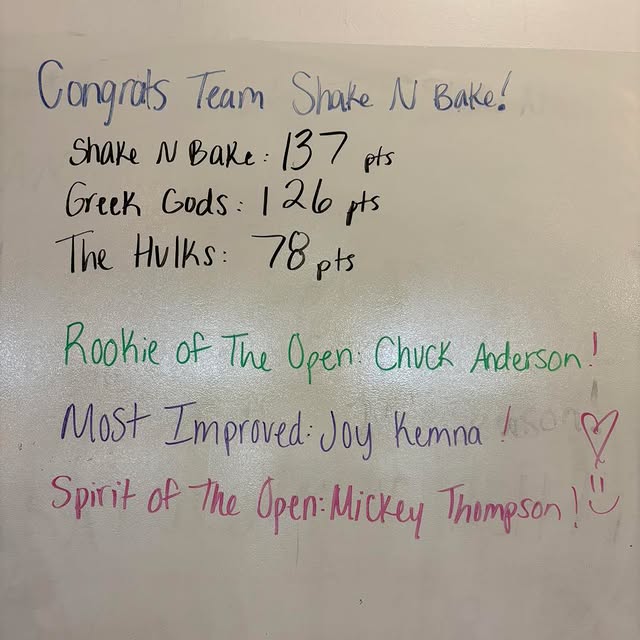 Congrats Team Shake N Bake!
Shake N Bake: 137 pts
Greek Gods: 126 pts
The Hulks: 78 pts
Rookie of The Open: Chuck Anderson!
Most Improved: Joy Kemna!
Spirit of The Open: Mickey Thompson!